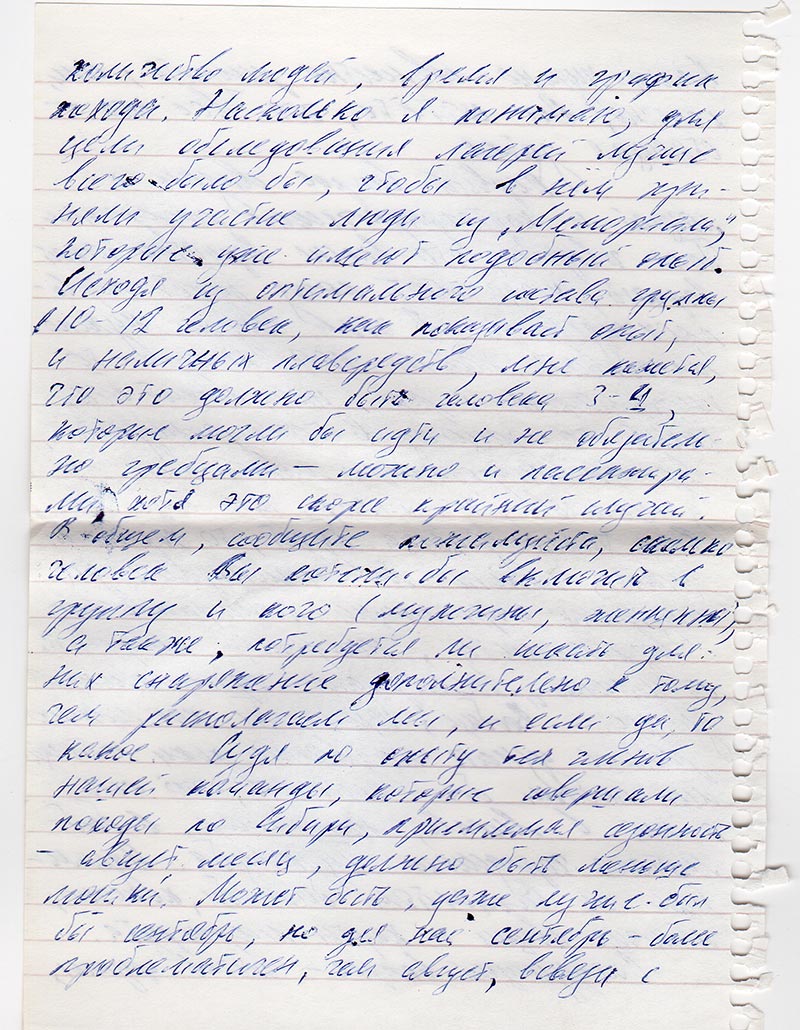 количество людей, время и график
похода. Насколько я понимаю, для
цели обследования лагерей лучше
всего было бы, чтобы в нём при-
няли участие люди из „Мемориала",
которые уже имеют подобный опыт.
Исходя из оптимального состава группы
в 10-12 человек, как показывает опыт,
и наличных плавсредств, мне кажется,
что это должно быть человека 3-4,
которые могли бы идти и не обязатель-
но гребцами – можно и пассажира-
ми, хотя это скорее крайний случай.
В общем, сообщите пожалуйста, сколько
человек Вы хотели бы включить в
группу и кого (мужчины, женщины),
а также, потребуется ли искать для
них снаряжение дополнительно к тому,
чем располагаем мы, и если да, то
какое. Судя по опыту тех членов
нашей команды, которые совершали
походы по Сибири, приемлемая сезонность
– август месяц, должно быть меньше
мошки. Может быть, даже лучше был
бы сентябрь, но для нас сентябрь – более
проблематичен, чем август, в связи с